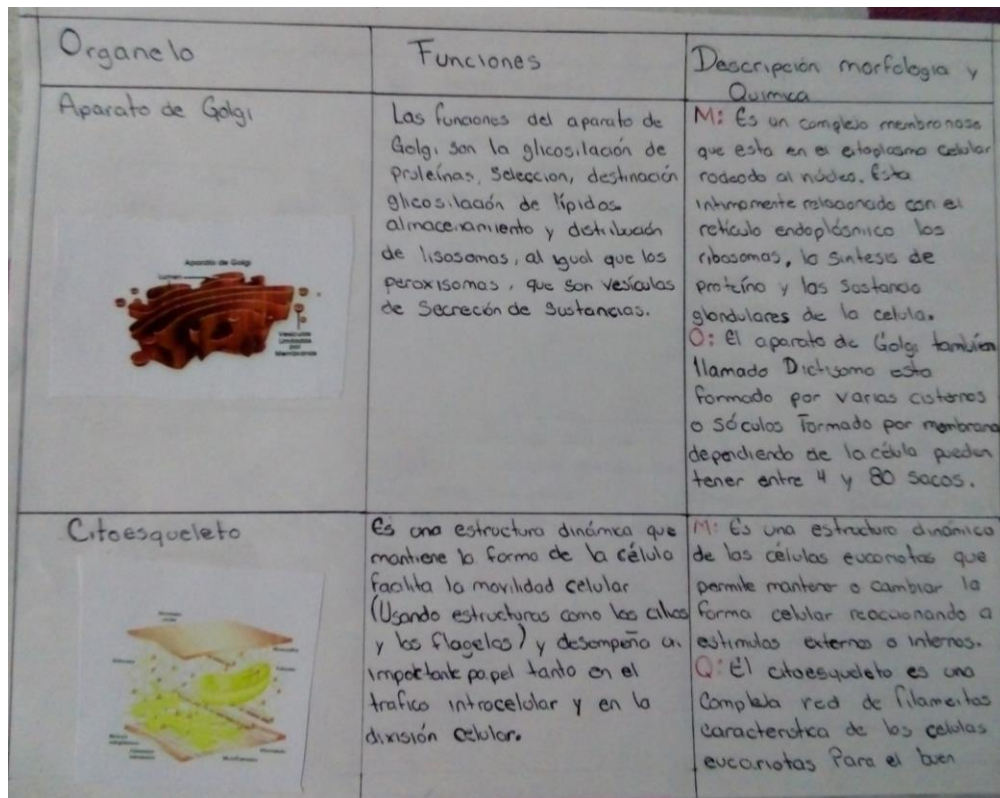 Organelo
Funciones
Descripción morfologia y
Quimica
Aparato de Golgi
Aparato de Golgi
Lumen
Vesículas
Limitadas
por
Membrana
Las funciones del aparato de
Golgi son la glicosilación de
proteínas, Seleccion, destinación
glicosilación de lípidos
almacenamiento y distribución
de lisosomas, al igual que los
peroxisomas, que son vesículas
de Secreción de Sustancias.
M: Es un complejo membranoso
que esta en el citoplasma celular
rodeado al núcleo. Esta
intimamente relacionado con el
retículo endoplásmico los
ribosomas, la sintesis de
proteína y las Sustancia
glandulares de la celula.
Q: El aparato de Golgi también
llamado Dictisomo esta
formado por varias cisternas
o sáculos Formado por membrana
dependiendo de la célula pueden
tener entre 4 y 80 sacos.
Citoesqueleto
Es una estructura dinámica que
mantiene la forma de la célula
facilita la movilidad celular
(Usando estructuras como los cilios
y los flagelos) y desempeña un
importante papel tanto en el
trafico intracelular y en la
división celular.
M: Es una estructura dinámica
de las células eucariotas que
permite mantener o cambiar la
forma celular reaccionando a
estimulos externos o internos.
Q: El citoesqueleto es una
Compleja red de filamentos
caracteristica de las celulas
eucariotas Para el buen